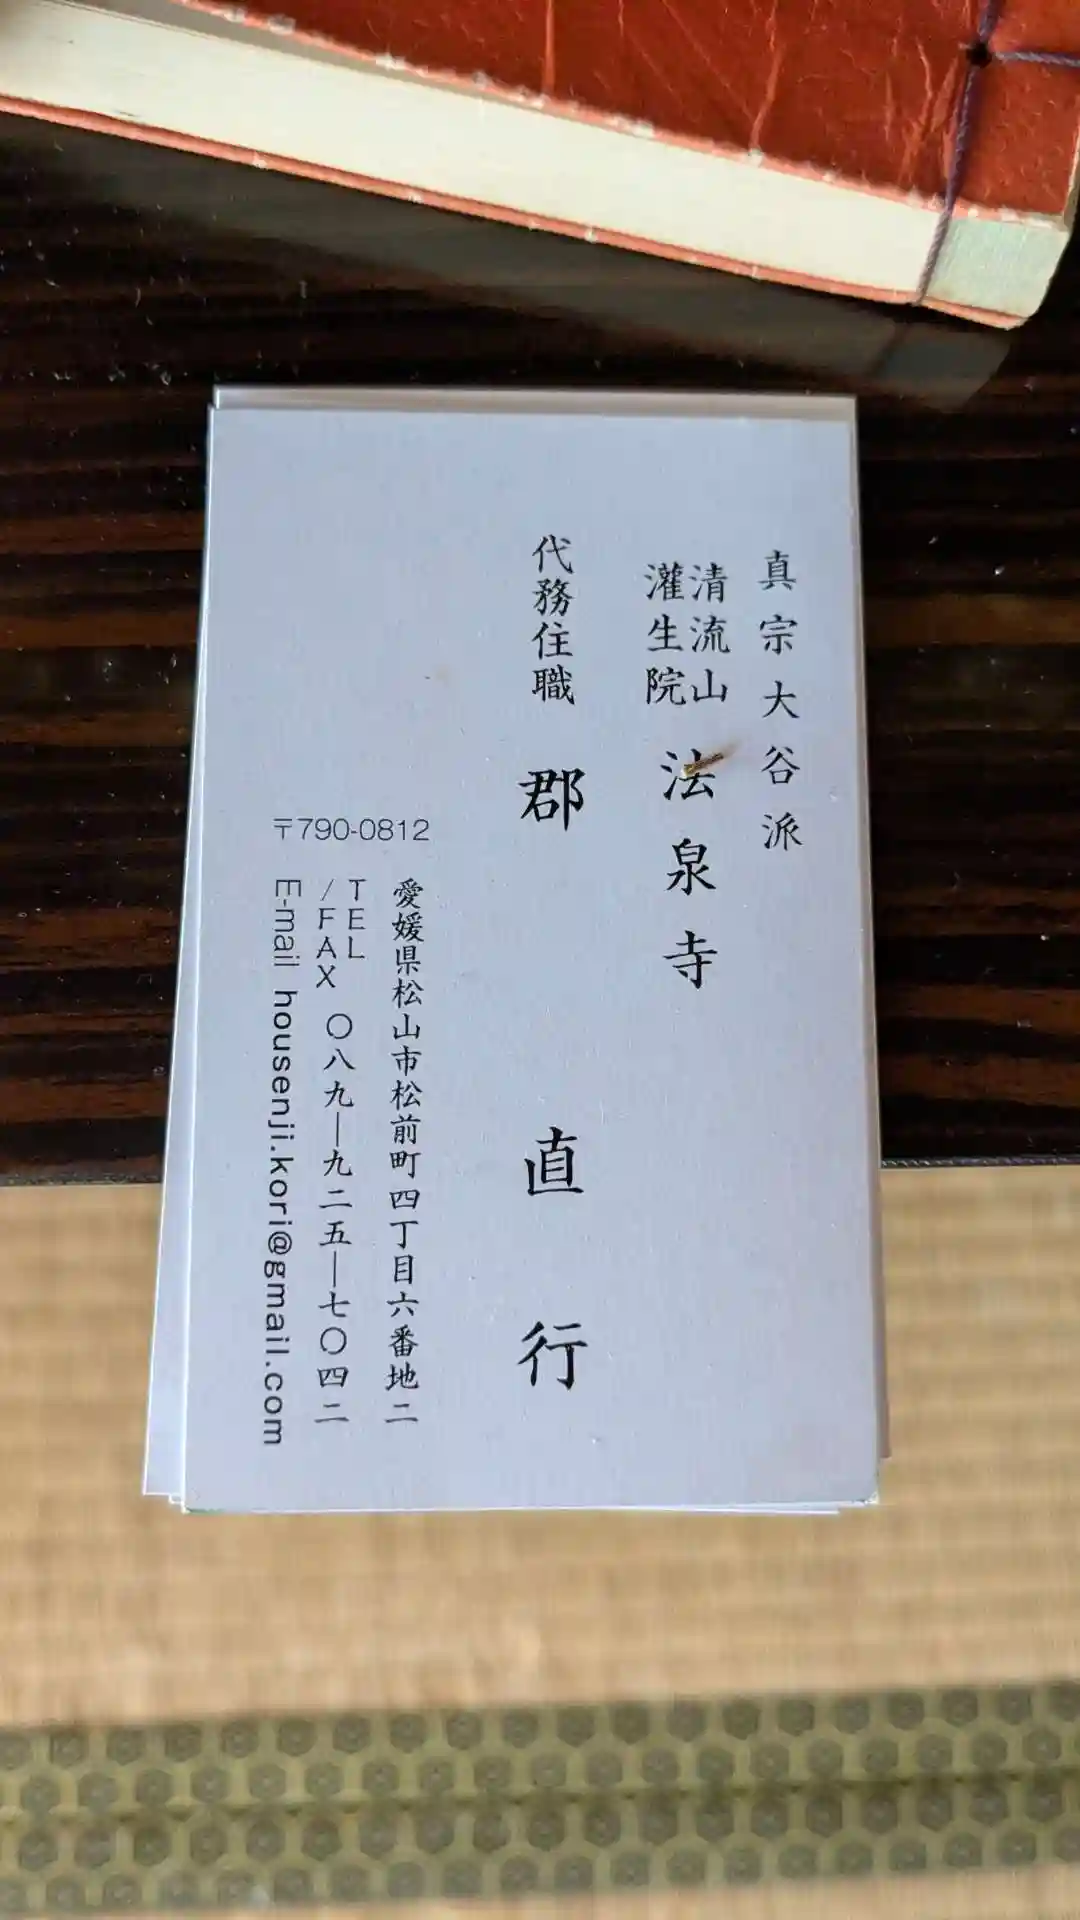 真宗大谷派
清流山
灌生院
法泉寺
代務住職
郡 直行
〒790-0812
愛媛県松山市松前町四丁目六番地二
TEL
/FAX
〇八九―九二五―七〇四二
E-mail housenji.kori@gmail.com